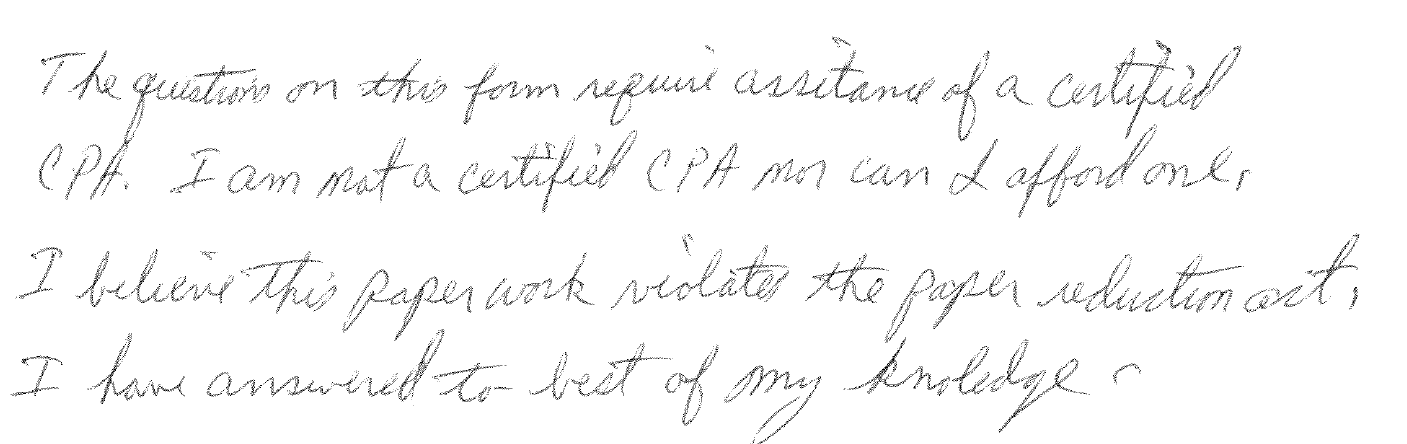 The questions on this form require assitance of a certified
CPA. I am not a certified CPA nor can I afford one,
I believe this paper work violates the paper reduction act,
I have answered to best of my knoledge